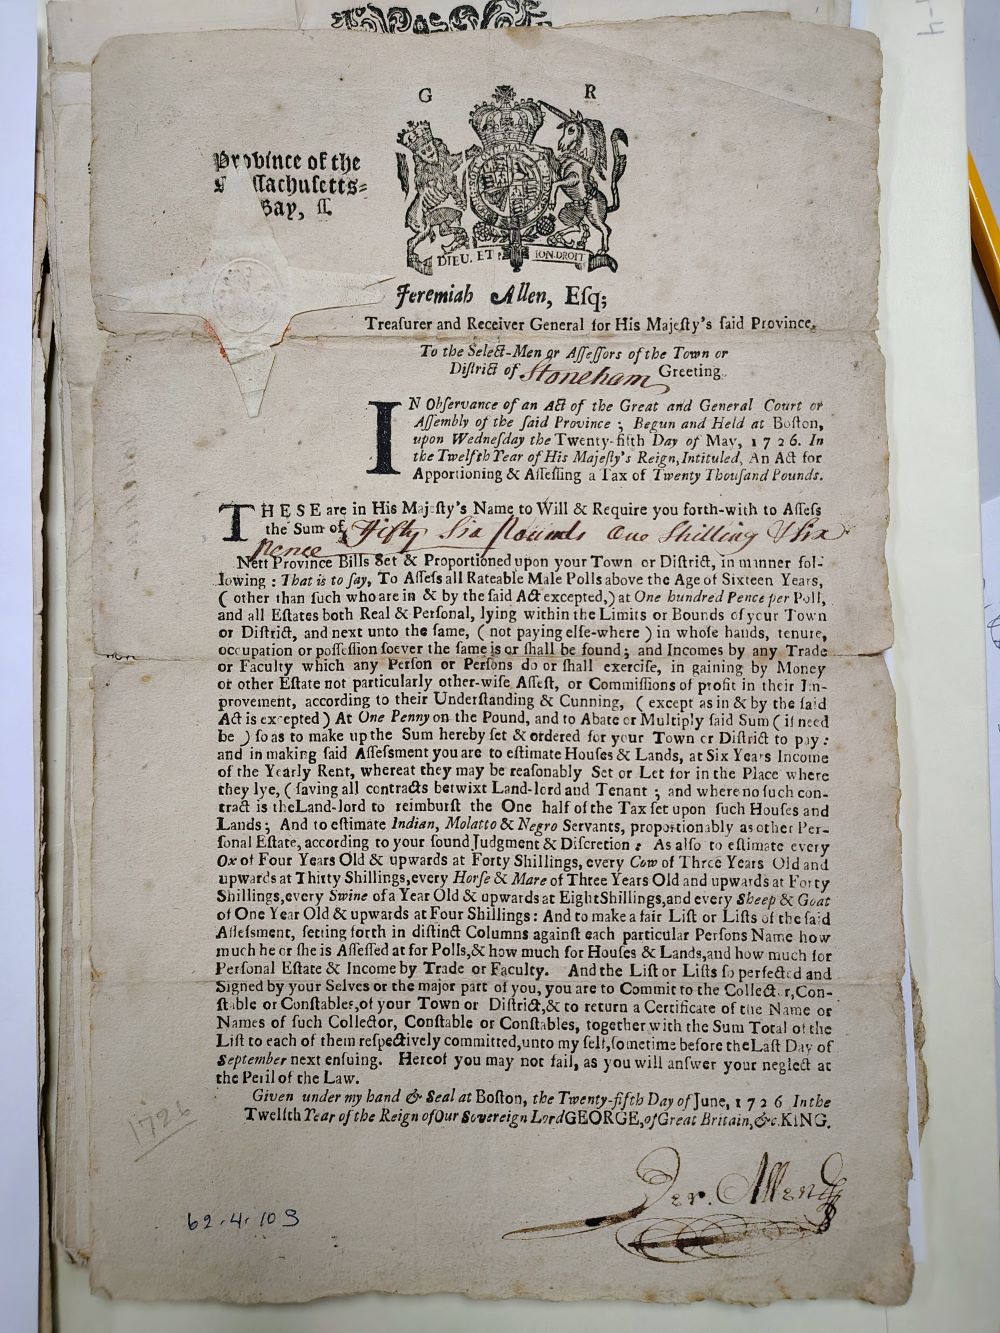 G R
Province of the
Massachusetts-
Bay, ss.
DIEU. ET MON. DROIT
Jeremiah Allen, Esq;
Treasurer and Receiver General for His Majesty's said Province.
To the Select-Men or Assessors of the Town or
District of Stoneham Greeting.
IN Observance of an Act of the Great and General Court or
Assembly of the said Province; Begun and Held at Boston,
upon Wednesday the Twenty-fifth Day of May, 1726. In
the Twelfth Year of His Majesty's Reign, Intituled, An Act for
Apportioning & Assessing a Tax of Twenty Thousand Pounds.
THESE are in His Majesty's Name to Will & Require you forth-with to Assess
the Sum of Fifty Six Pounds One Shilling & Six
Pence
Nett Province Bills Set & Proportioned upon your Town or District, in manner fol-
lowing: That is to say, To Assess all Rateable Male Polls above the Age of Sixteen Years,
(other than such who are in & by the said Act excepted,) at One hundred Pence per Poll,
and all Estates both Real & Personal, lying within the Limits or Bounds of your Town
or District, and next unto the same, (not paying else-where) in whose hands, tenure,
occupation or possession soever the same is or shall be found; and Incomes by any Trade
or Faculty which any Person or Persons do or shall exercise, in gaining by Money
or other Estate not particularly other-wise Assest, or Commissions of profit in their Im-
provement, according to their Understanding & Cunning, (except as in & by the said
Act is excepted) At One Penny on the Pound, and to Abate or Multiply said Sum (if need
be) so as to make up the Sum hereby set & ordered for your Town or District to pay:
and in making said Assessment you are to estimate Houses & Lands, at Six Years Income
of the Yearly Rent, whereat they may be reasonably Set or Let for in the Place where
they lye, (saving all contracts betwixt Land-lord and Tenant; and where no such con-
tract is the Land-lord to reimburst the One half of the Tax set upon such Houses and
Lands; And to estimate Indian, Molatto & Negro Servants, proportionably as other Per-
sonal Estate, according to your sound Judgment & Discretion: As also to estimate every
Ox of Four Years Old & upwards at Forty Shillings, every Cow of Three Years Old and
upwards at Thirty Shillings, every Horse & Mare of Three Years Old and upwards at Forty
Shillings, every Swine of a Year Old & upwards at Eight Shillings, and every Sheep & Goat
of One Year Old & upwards at Four Shillings: And to make a fair List or Lists of the said
Assessment, setting forth in distinct Columns against each particular Persons Name how
much he or she is Assessed at for Polls, & how much for Houses & Lands, and how much for
Personal Estate & Income by Trade or Faculty. And the List or Lists so perfected and
Signed by your Selves or the major part of you, you are to Commit to the Collector, Con-
stable or Constables, of your Town or District, & to return a Certificate of the Name or
Names of such Collector, Constable or Constables, together with the Sum Total of the
List to each of them respectively committed, unto my self, sometime before the Last Day of
September next ensuing. Hereof you may not fail, as you will answer your neglect at
the Peril of the Law.
Given under my hand & Seal at Boston, the Twenty-fifth Day of June, 1726 In the
Twelfth Year of the Reign of Our Sovereign Lord GEORGE, of Great Britain, &c. KING.
1726
Jer. Allen
62.4.103